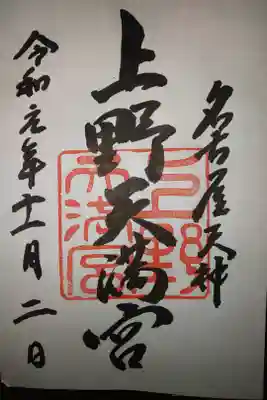 名古屋天神
上野天満宮
令和元年十一月二日
上野天満宮